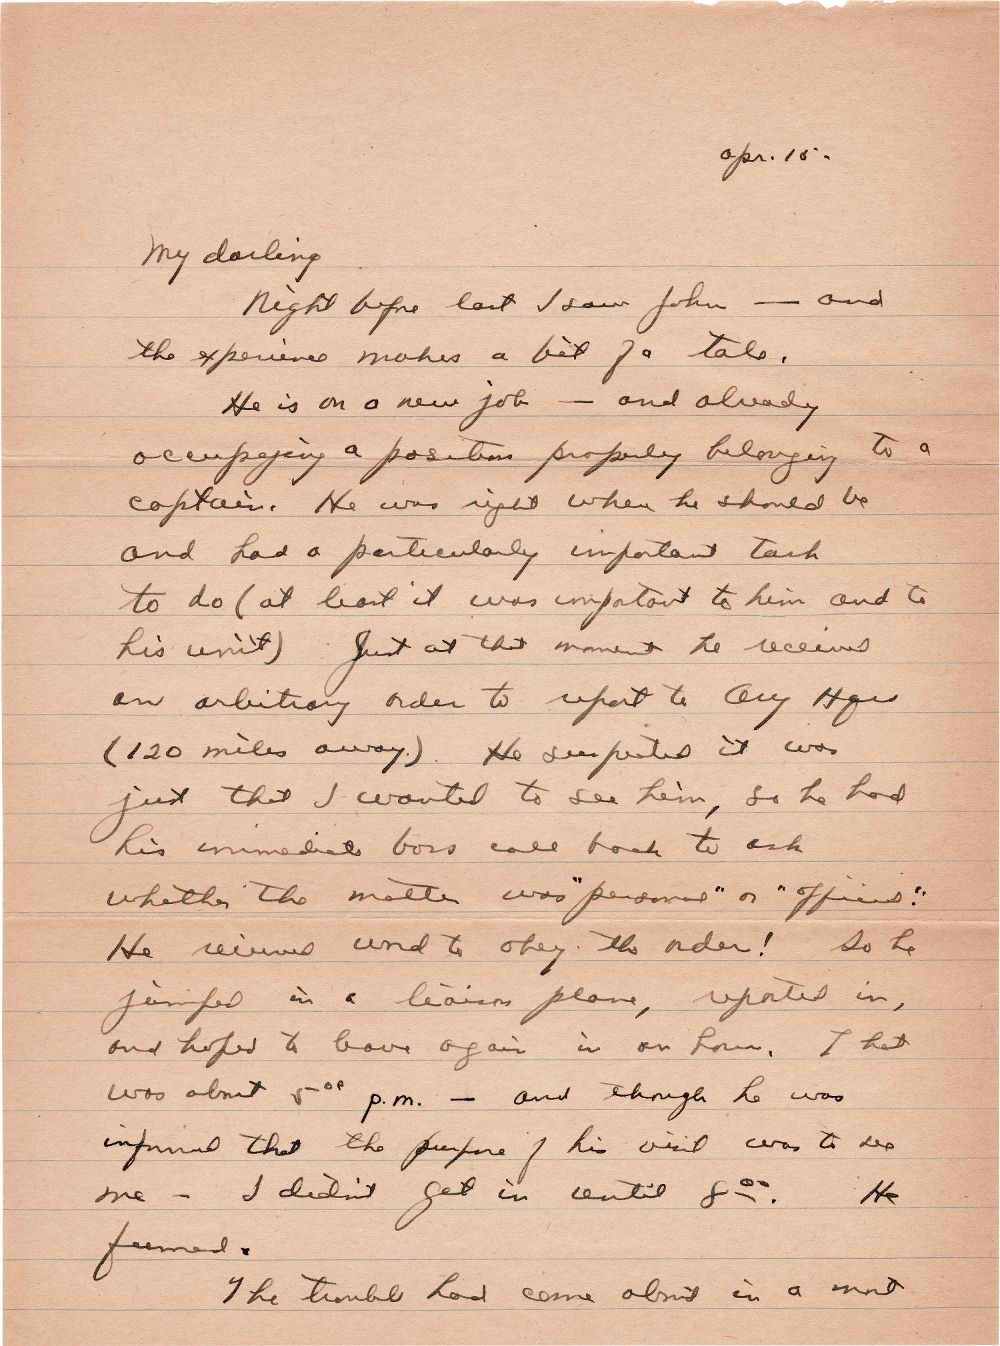 Apr. 15.
My darling
Night before last I saw John — and
the experience makes a bit of a tale.
He is on a new job — and already
occupying a position properly belonging to a
captain. He was right where he should be
and had a particularly important task
to do (at least it was important to him and to
his unit) Just at that moment he received
an arbitrary order to report to Army Hqrs
(120 miles away.). He suspected it was
just that I wanted to see him, so he had
his immediate boss call back to ask
whether the matter was "personal" or "official."
He received word to obey the order! So he
jumped in a liaison plane, reported in,
and hoped to leave again in an hour. That
was about 5⁰⁰ p.m. — and though he was
informed that the purpose of his visit was to see
me — I didn't get in until 8⁰⁰. He
fumed.
The trouble had come about in a most